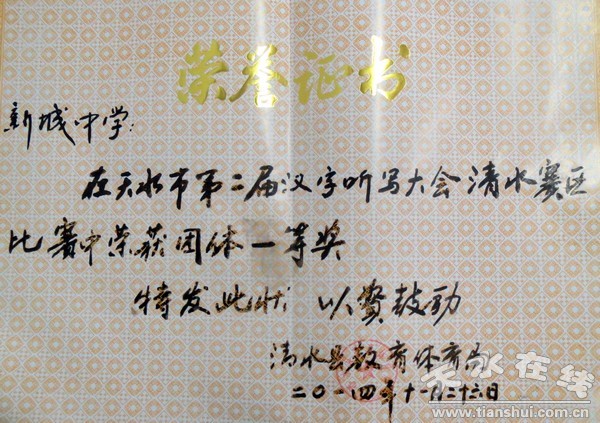 荣誉证书
新城中学:
在天水市第二届汉字听写大会清水赛区
比赛中荣获团体一等奖
特发此状 以赞鼓劲
清水县教育体育局
二〇一四年十一月二十六日
天水在线
www.tianshui.com.cn